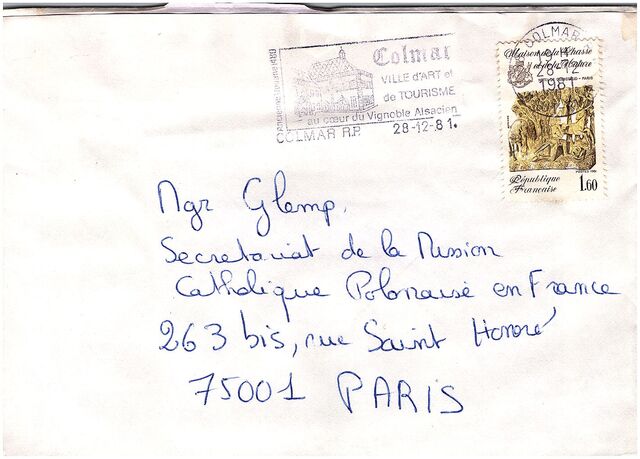 Colmar
VILLE d'ART et
de TOURISME
au cœur du Vignoble Alsacien
COLMAR R.P. 28-12-81.
COLMAR
28-12
1981
Maison de la Chasse
et de la Nature
PARIS
République
Française
1.60
Mgr Glemp,
Secretariat de la Mission
Catholique Polonaise en France
263 bis, rue Saint Honoré
75001 PARIS